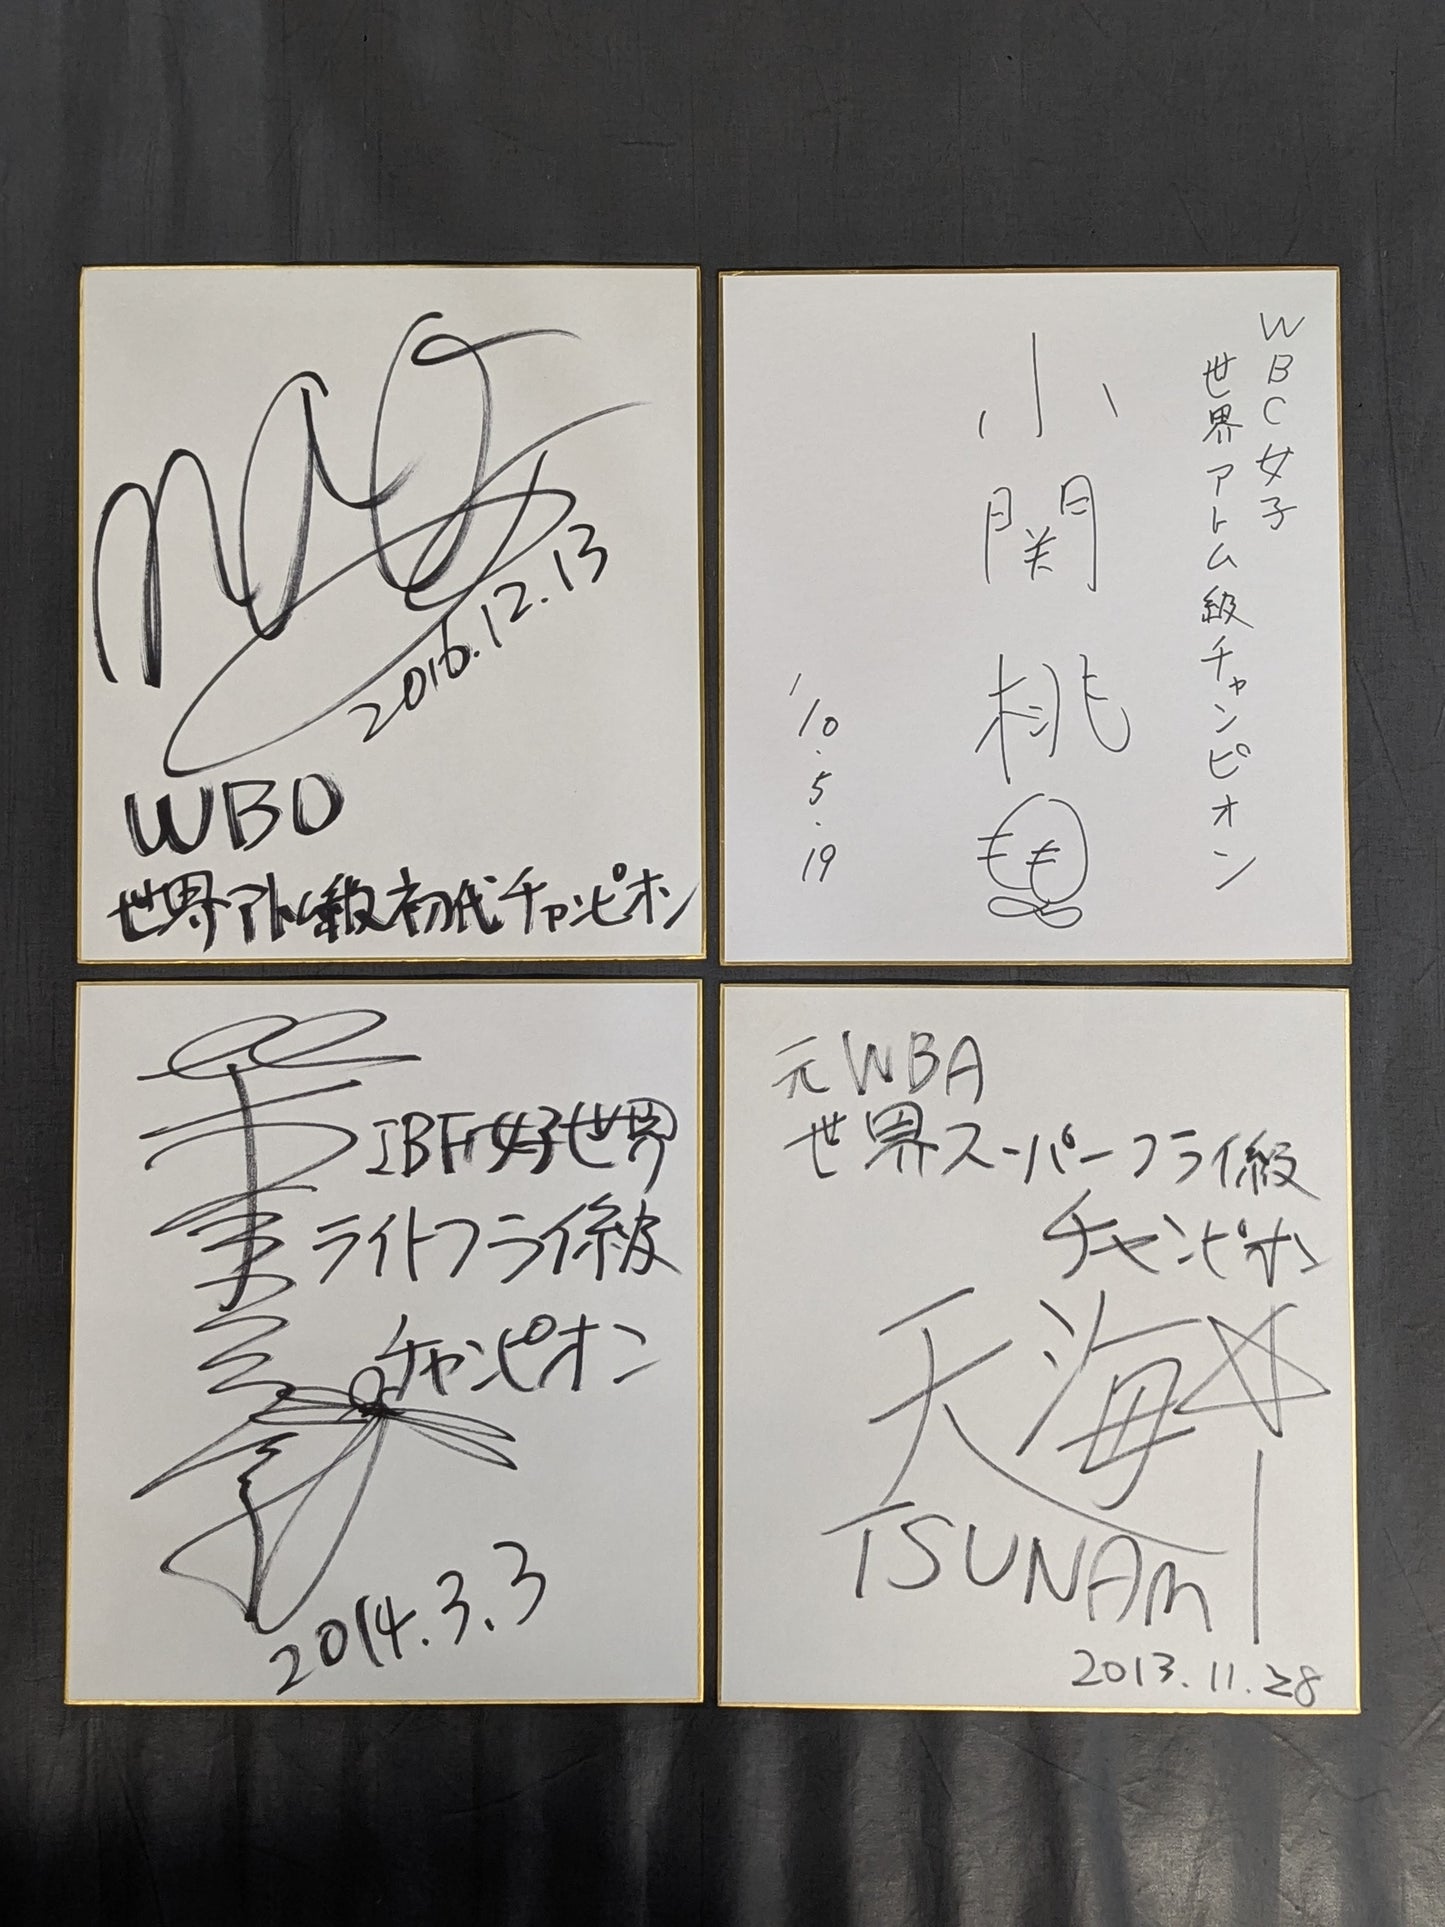 2016.12.13
WBO
世界アトム級初代チャンピオン
WBC女子
世界アトム級チャンピオン
小関桃
もも
'10.5.19
IBF女子世界
ライトフライ級
チャンピオン
2014.3.3
元WBA
世界スーパーフライ級
チャンピオン
天海
TSUNAMI
2013.11.28